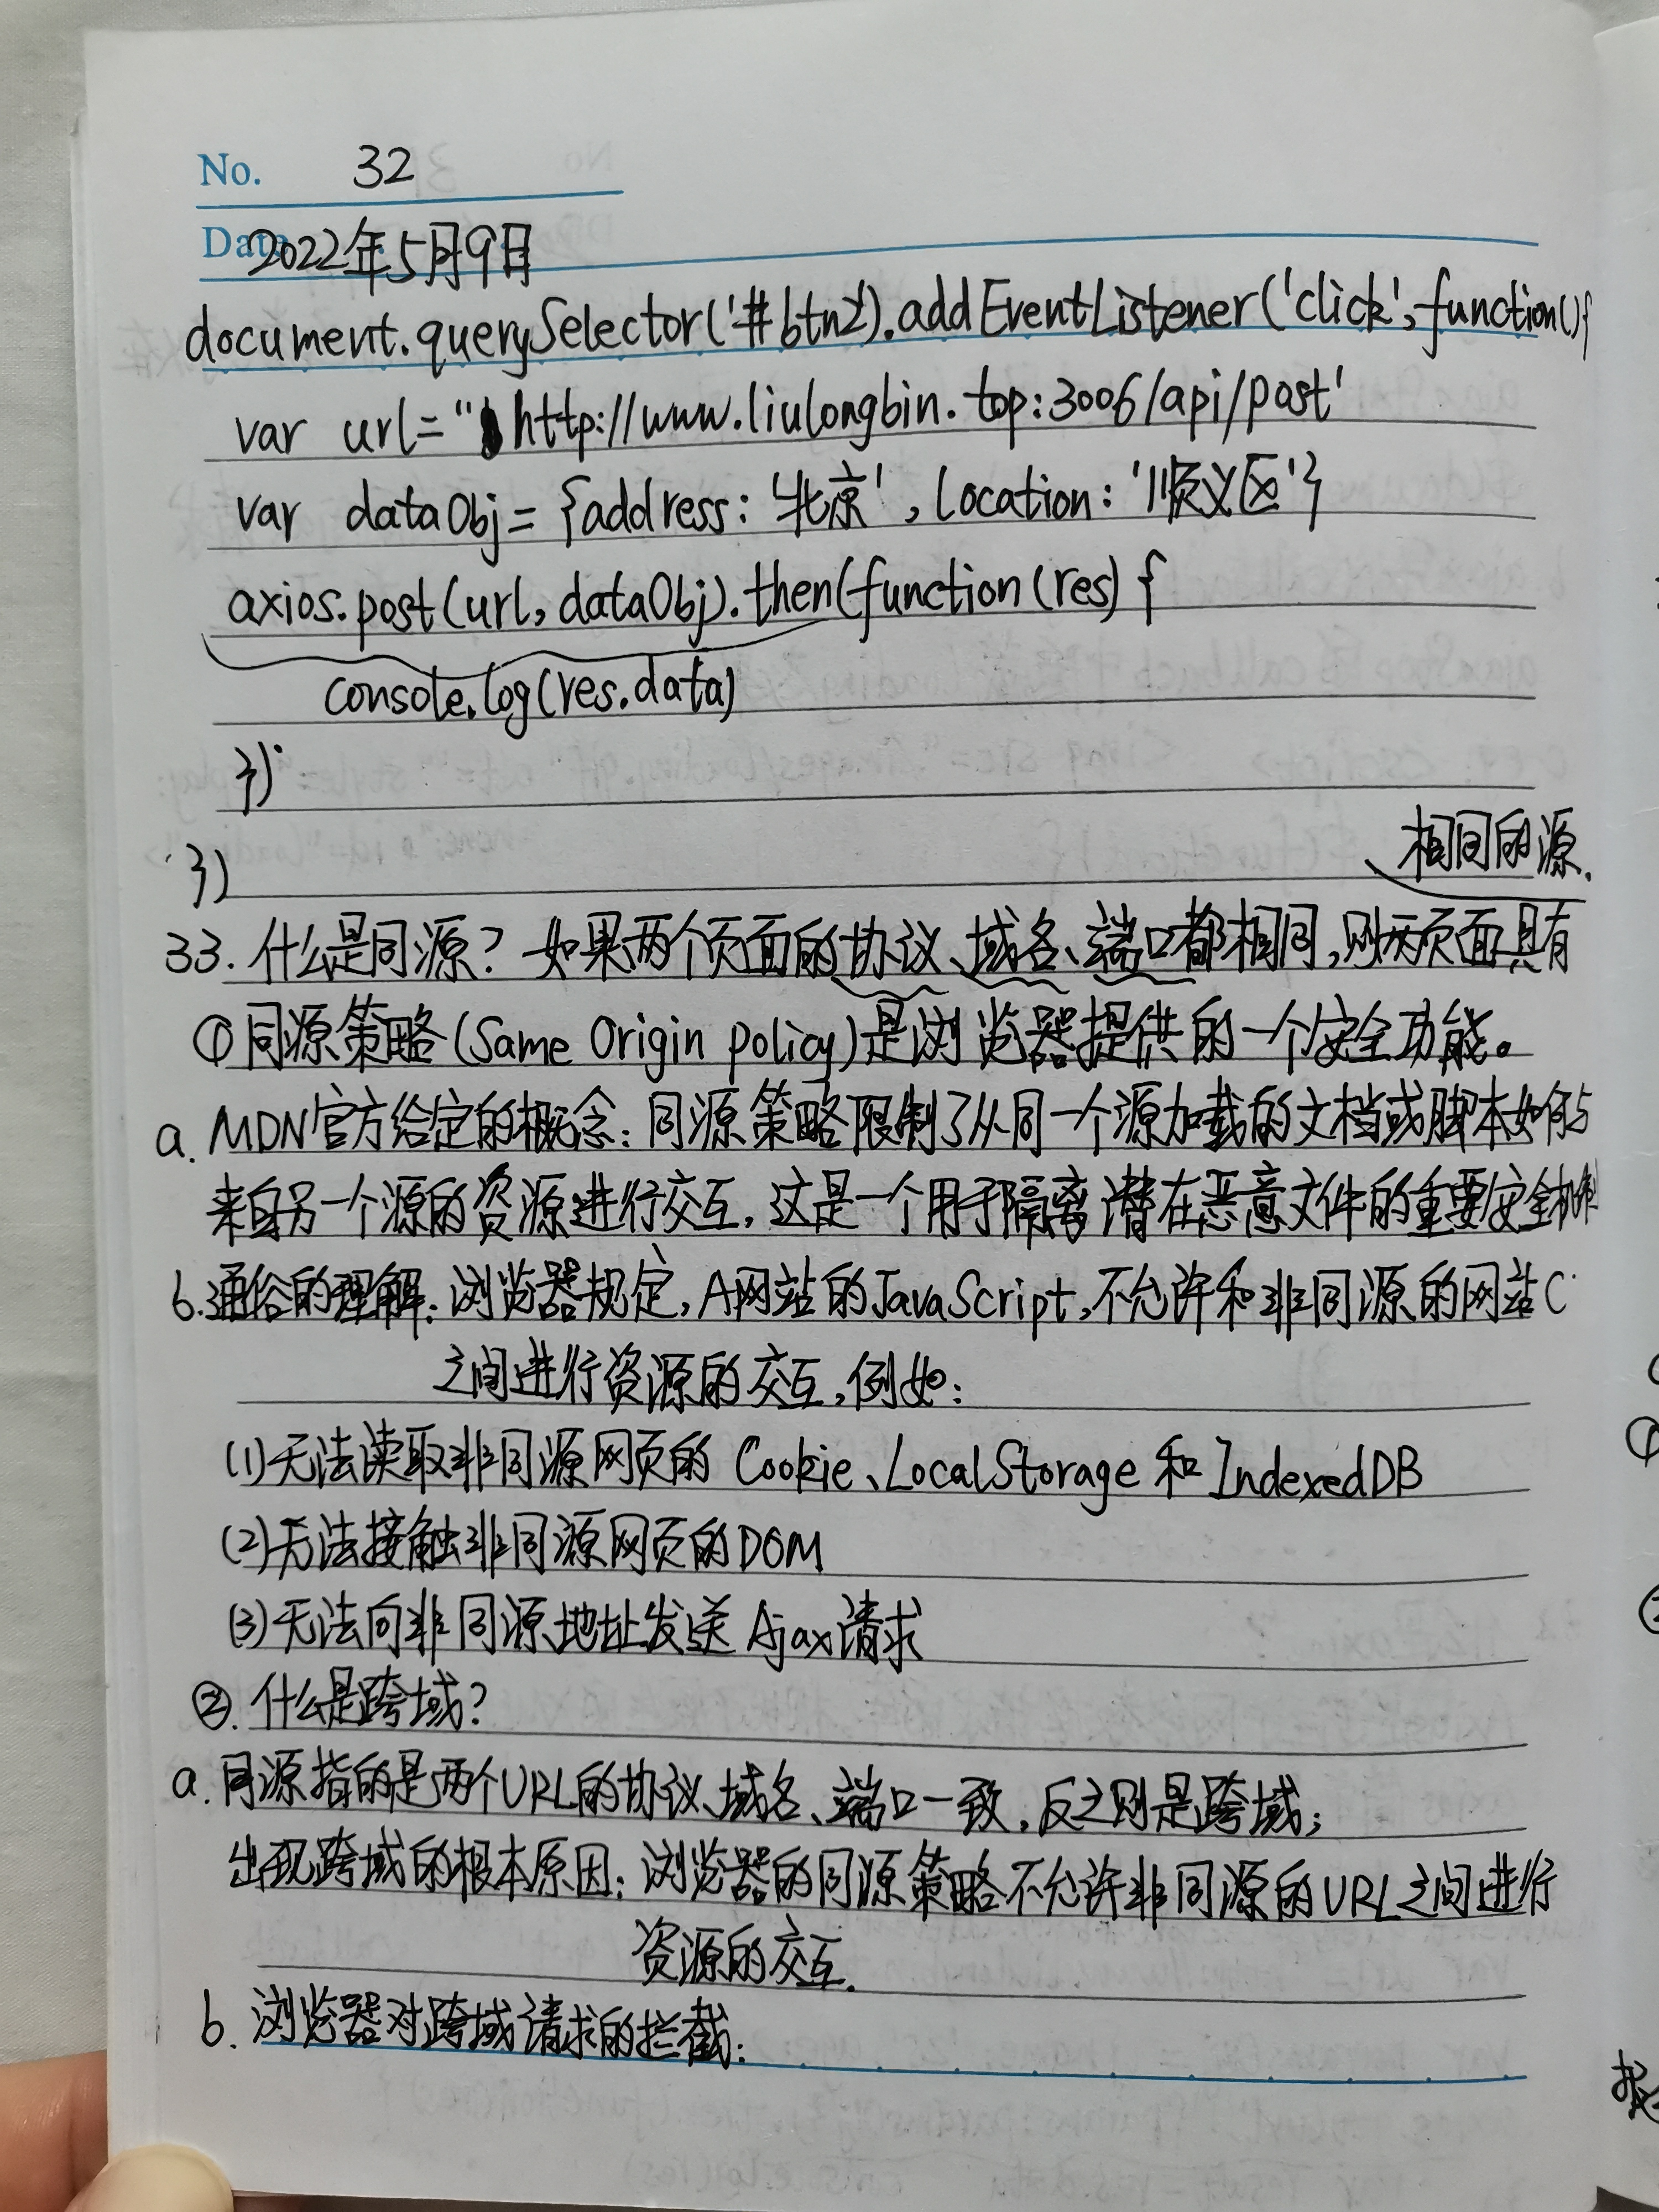 No. 32
Data 2022年5月9日
document.querySelector('#btn2').addEventListener('click',function(){
var url="http://www.liulongbin.top:3006/api/post'
var dataObj={address:'北京',location:'顺义区'}
axios.post(url,dataObj).then(function(res){
console.log(res.data)
})
})
相同的源.
33.什么是同源?如果两个页面的协议、域名、端口都相同,则两页面具有
①同源策略(Same Origin policy)是浏览器提供的一个安全功能。
a.MDN官方给定的概念:同源策略限制了从同一个源加载的文档或脚本如何与
来自另一个源的资源进行交互,这是一个用于隔离潜在恶意文件的重要安全机制
b.通俗的理解:浏览器规定,A网站的JavaScript,不允许和非同源的网站C
之间进行资源的交互,例如:
(1)无法读取非同源网页的Cookie、LocalStorage和IndexedDB
(2)无法接触非同源网页的DOM
(3)无法向非同源地址发送Ajax请求
②.什么是跨域?
a.同源指的是两个URL的协议、域名、端口一致,反之则是跨域;
出现跨域的根本原因:浏览器的同源策略不允许非同源的URL之间进行
资源的交互.
b.浏览器对跨域请求的拦截: